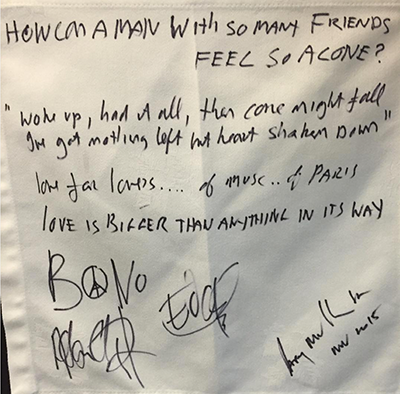 HOW CAN A MAN WITH SO MANY FRIENDS
FEEL SO ALONE?
"woke up, had it all, then come night fall
I've got nothing left but heart shaken down"
love for lovers.... of music.. of PARIS
LOVE IS BIGGER THAN ANYTHING IN ITS WAY
BONO
EDGE
NOV 2015